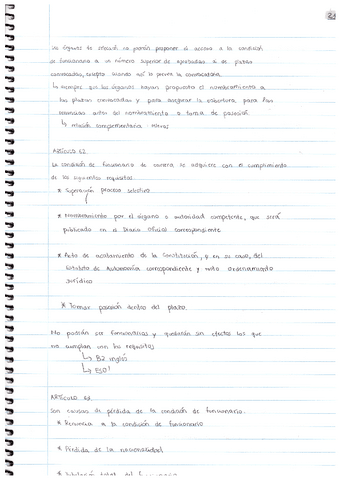 21
Los órganos de selección no podrán proponer el acceso a la condición
de funcionario de un número superior de aprobados al de plazas
convocadas, excepto cuando así lo prevea la convocatoria.
↳ siempre que los órganos hayan propuesto el nombramiento a
las plazas convocadas y para asegurar la cobertura, para las
renuncias antes del nombramiento o toma de posesión
↳ relación complementaria
ARTÍCULO 62
La condición de funcionario de carrera se adquiere con el cumplimiento
de los siguientes requisitos:
* Superación proceso selectivo
* Nombramiento por el órgano o autoridad competente, que será
publicado en el Diario Oficial correspondiente
* Acto de acatamiento de la Constitución, y en su caso, del
Estatuto de Autonomía correspondiente y resto ordenamiento
jurídico
* Tomar posesión dentro del plazo.
No podrán ser funcionarios y quedarán sin efectos los que
no cumplan con los requisitos
↳ B2 inglés
↳ ESO!
ARTÍCULO 63
Son causas de pérdida de la condición de funcionario:
* Renuncia a la condición de funcionario
* Pérdida de la nacionalidad
* Jubilación total del funcionario